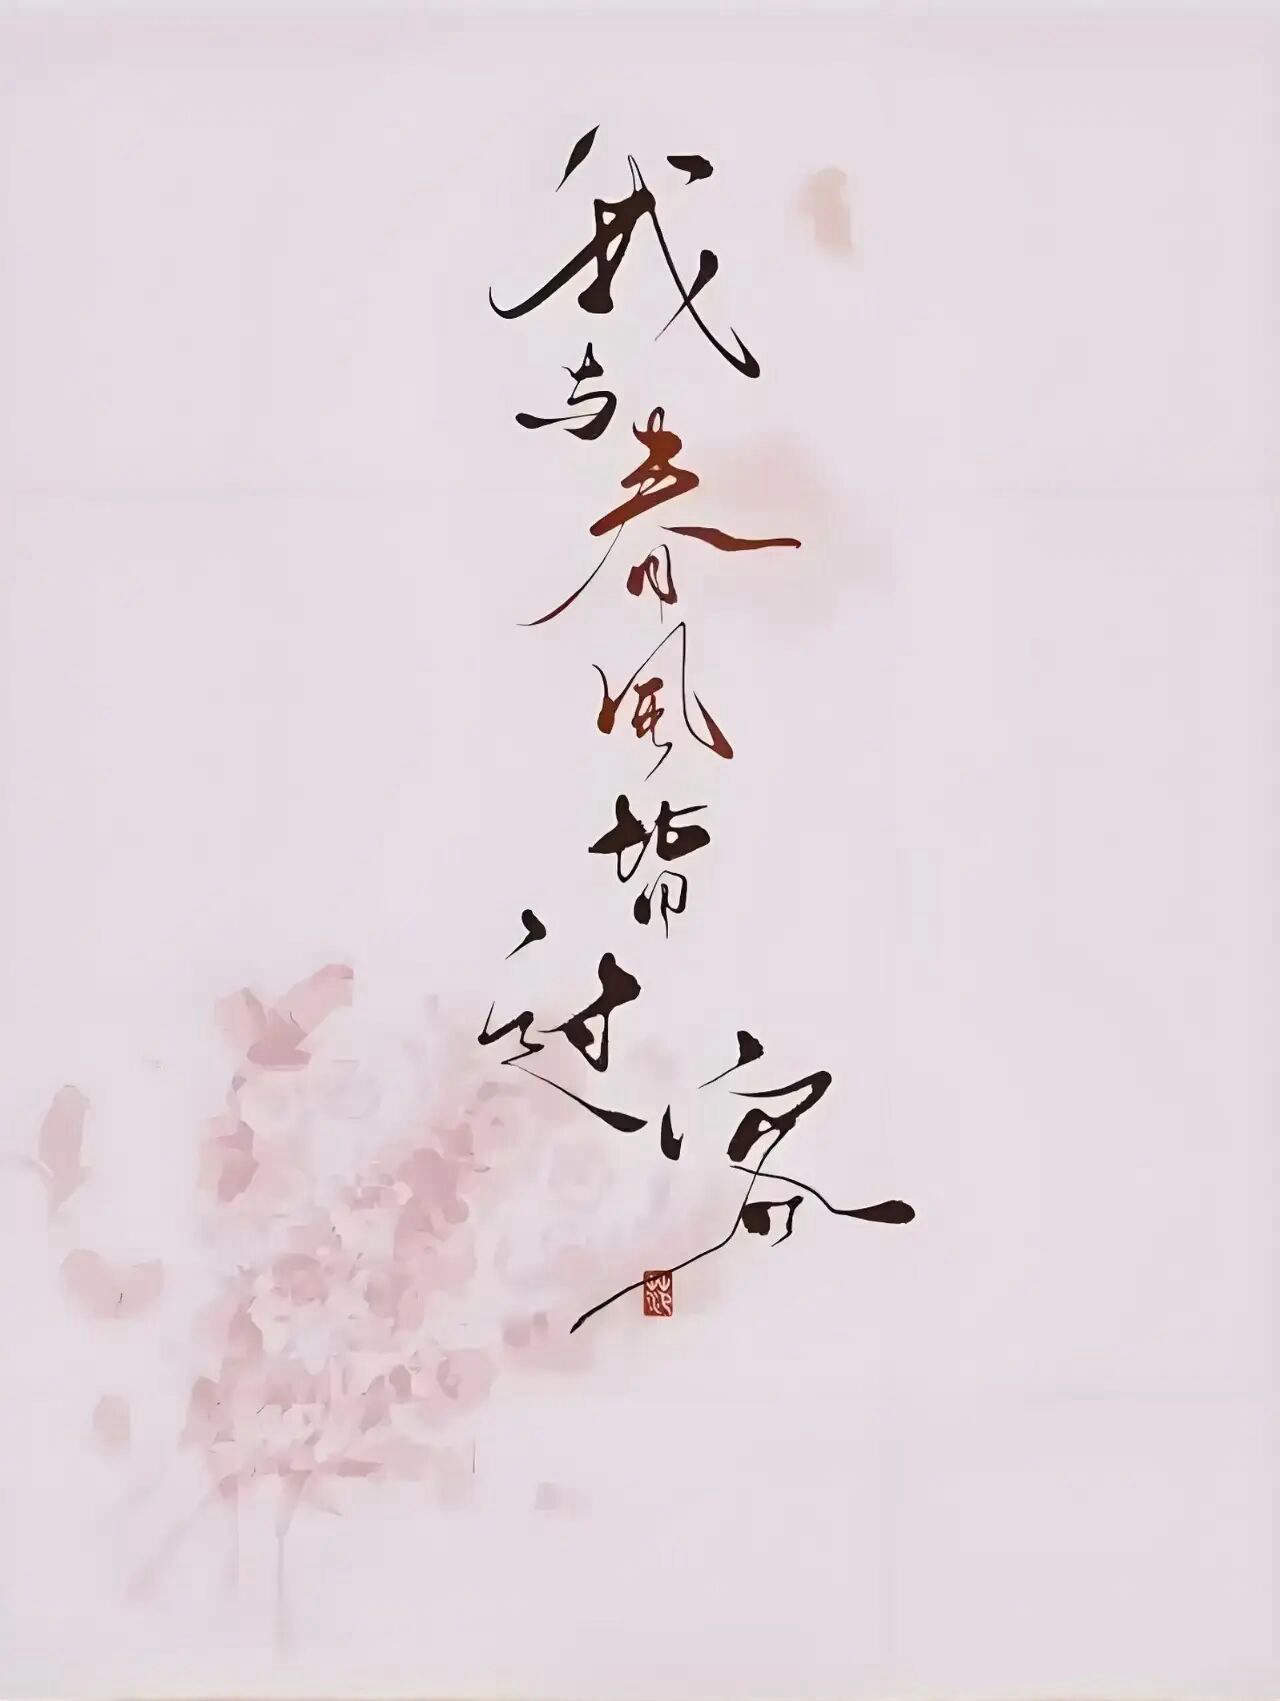 我与春風皆过客